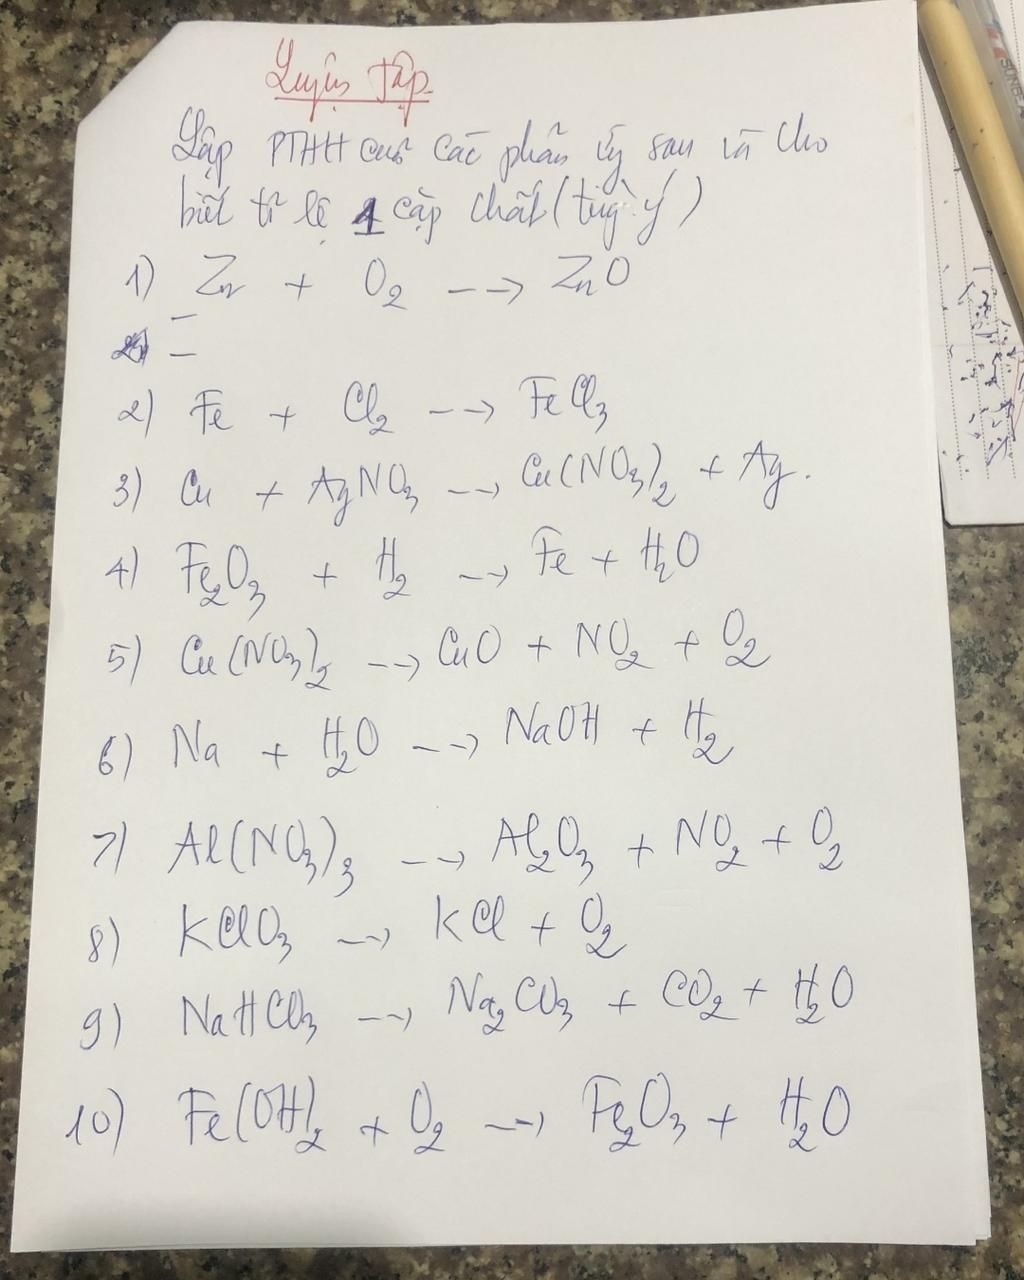 Luyện tập
Lập PTHH của các phản ứng sau và cho
biết tỉ lệ 1 cặp chất (tuỳ ý)
1) Zn + O₂ --> ZnO
2) Fe + Cl₂ --> FeCl₃
3) Cu + AgNO₃ --> Cu(NO₃)₂ + Ag.
4) Fe₂O₃ + H₂ --> Fe + H₂O
5) Cu(NO₃)₂ --> CuO + NO₂ + O₂
6) Na + H₂O --> NaOH + H₂
7) Al(NO₃)₃ --> Al₂O₃ + NO₂ + O₂
8) KClO₃ --> KCl + O₂
9) NaHCO₃ --> Na₂CO₃ + CO₂ + H₂O
10) Fe(OH)₂ + O₂ --> Fe₂O₃ + H₂O